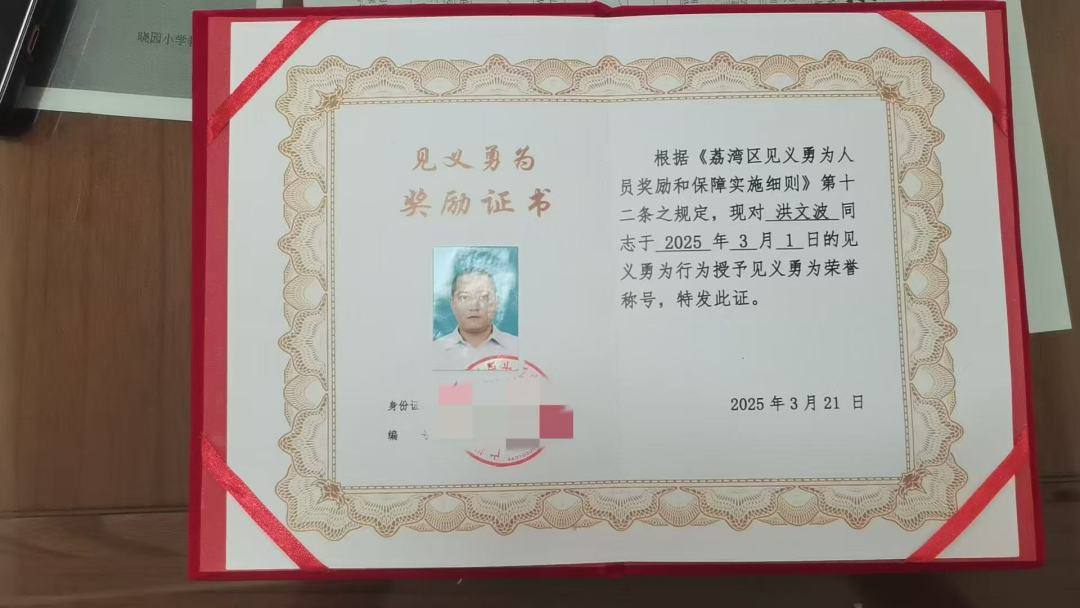 晓园小学
见义勇为
奖励证书
身份证
编
根据《荔湾区见义勇为人
员奖励和保障实施细则》第十
二条之规定，现对 洪文波 同
志于 2025 年 3 月 1 日的见
义勇为行为授予见义勇为荣誉
称号，特发此证。
2025 年 3 月 21 日